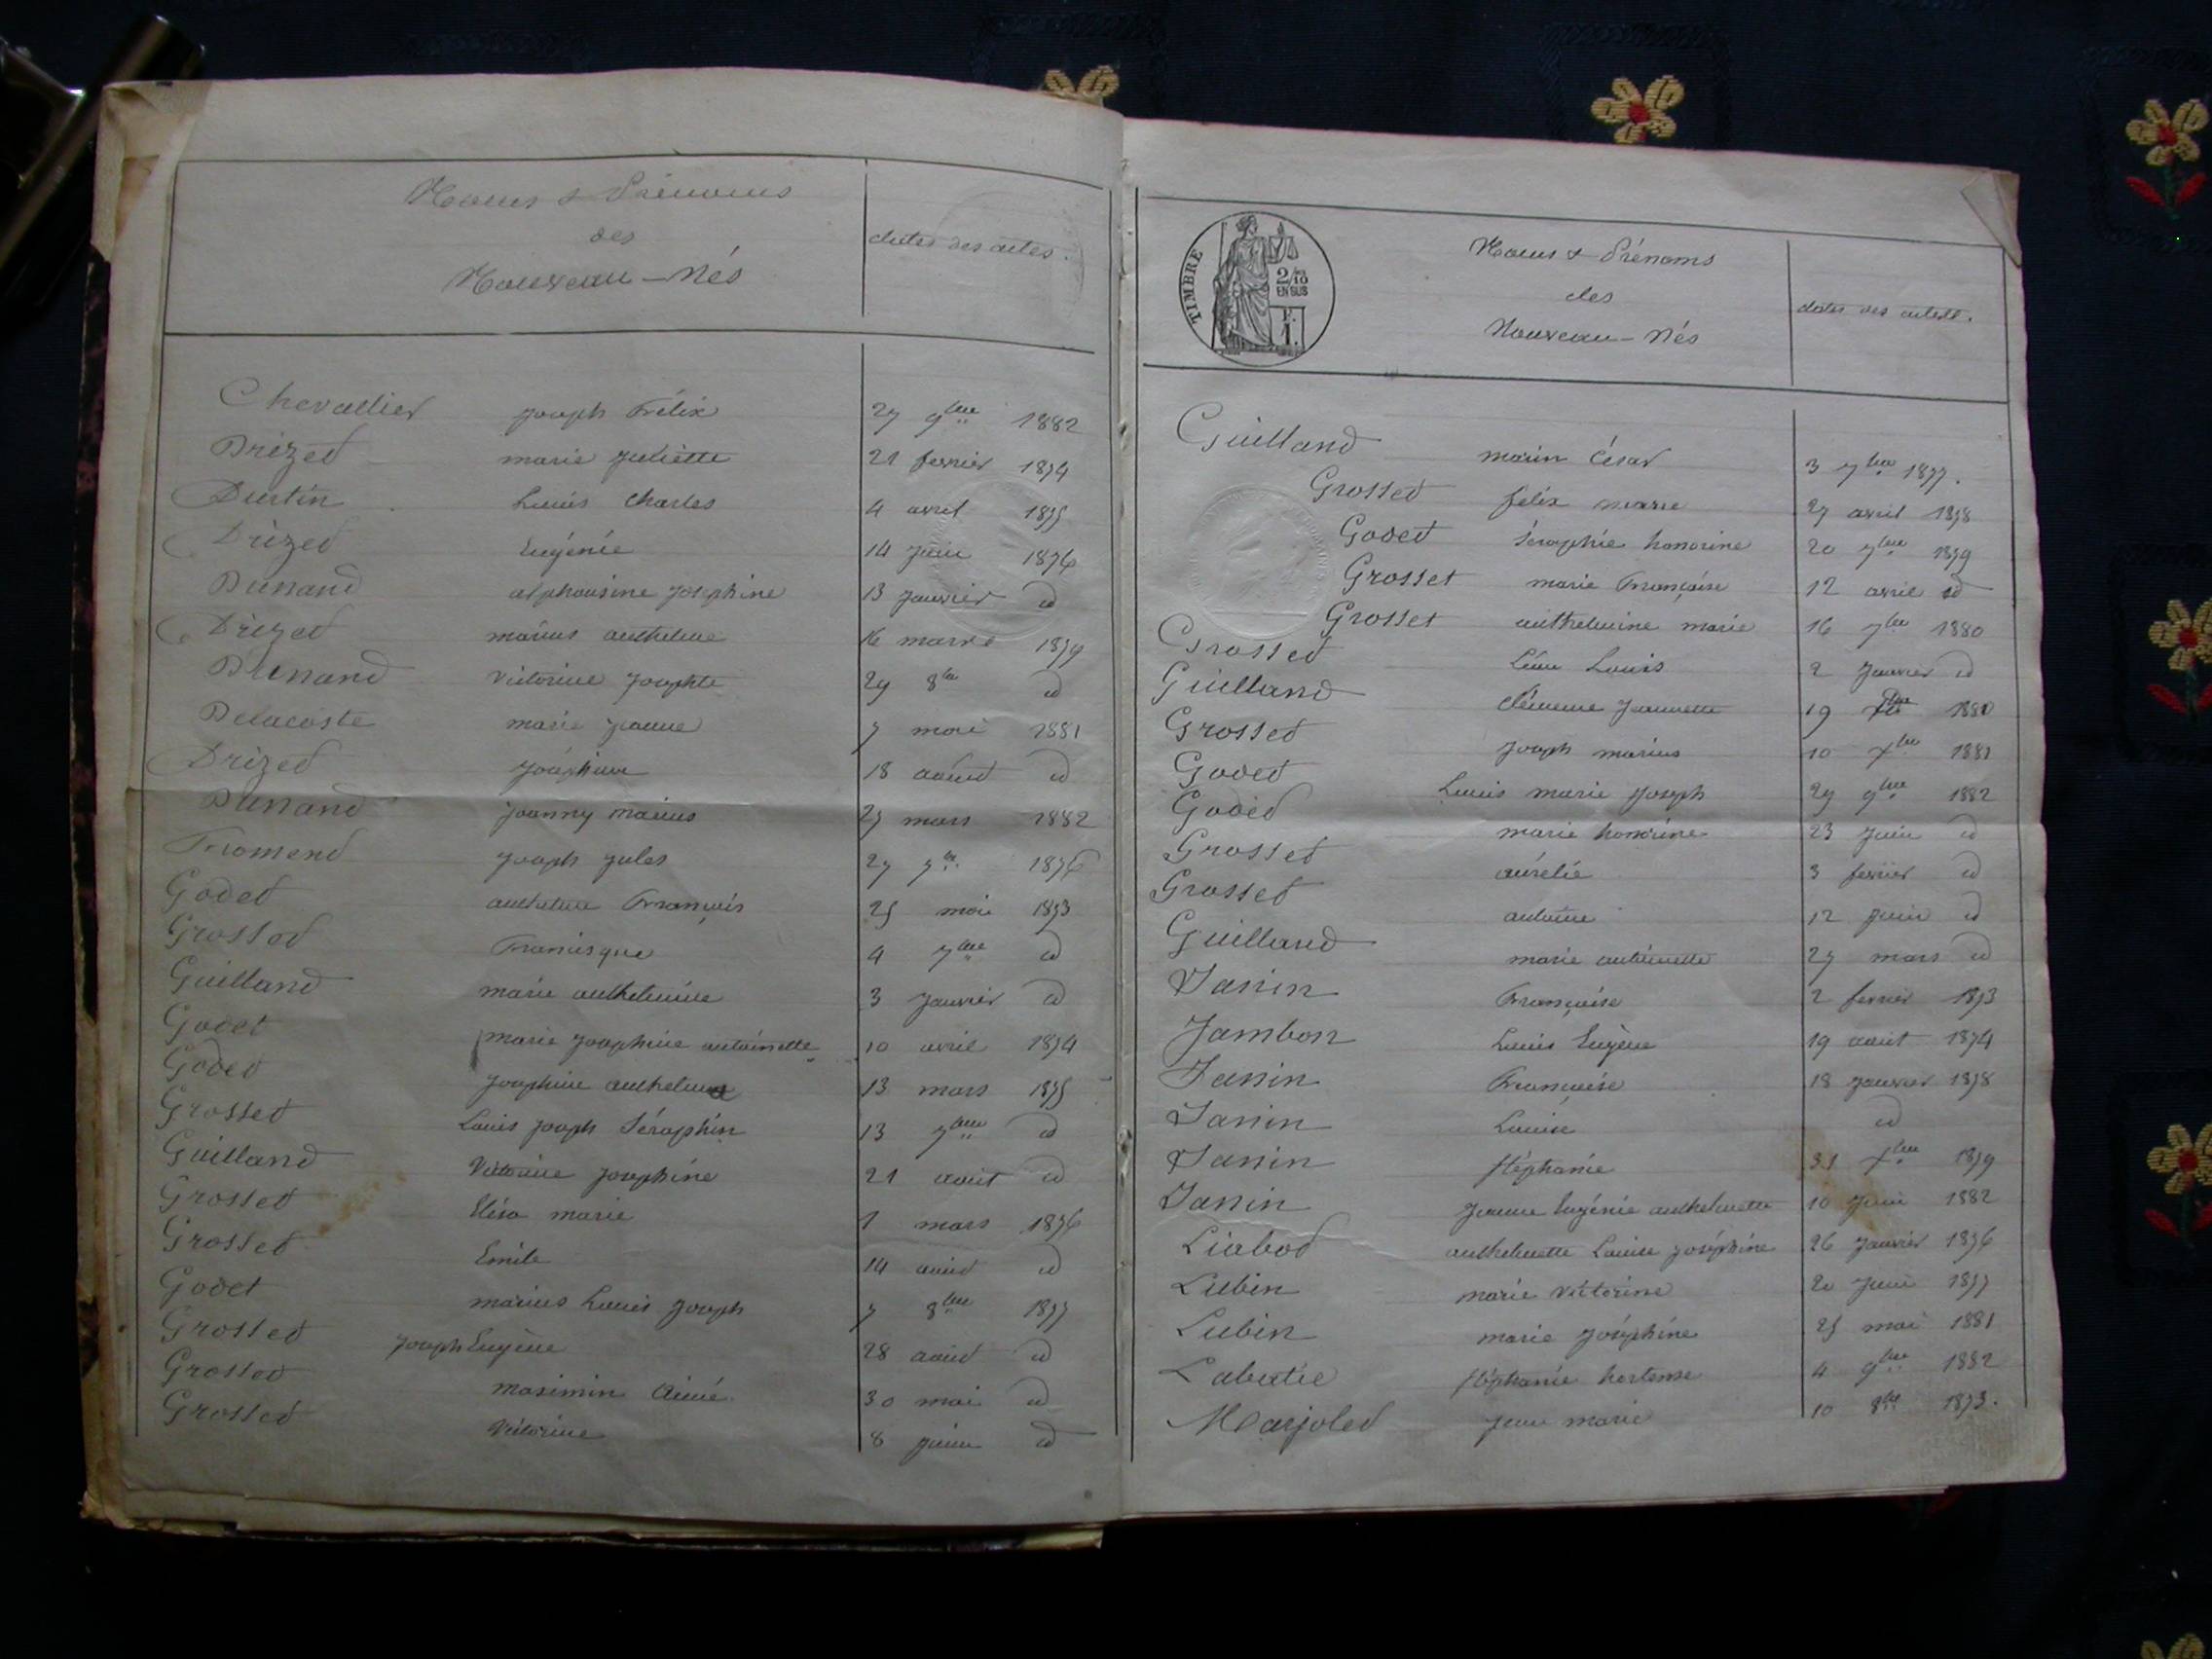 Noms & Prénoms
des
Nouveau-Nés
dates des actes.
Chevallier Joseph Félix 27 9bre 1882
Drizet marie Juliette 21 fevrier 1874
Durtin Louis Charles 4 avril 1875
Drizet Eugénie 14 Juin 1876
Dunand alphonsine Josephine 13 Janvier id
Drizet marius anthelme 16 mars 1879
Dunand Victorine Josephte 29 8bre id
Delacoste marie Jeanne 7 mai 1881
Drizet Joséphine 18 août id
Dunand Joanny marius 25 mars 1882
Fromend Joseph Jules 27 7bre 1876
Godet anthelme François 25 mai 1873
Grosset Francisque 4 7bre id
Guilland marie anthelmine 3 Janvier id
Godet marie Josephine antoinette 10 avril 1874
Godet Josephine anthelma 13 mars 1875
Grosset Louis Joseph Séraphin 13 7bre id
Guilland Victorine Josephine 21 août id
Grosset Elisa marie 1 mars 1876
Grosset Emile 14 août id
Godet marius Louis Joseph 7 8bre 1877
Grosset Joseph Eugène 28 août id
Grosset maximin Aimé 30 mai id
Grosset Victorine 8 Juin id
TIMBRE
2/10
EN SUS
Noms & Prénoms
des
Nouveau-Nés
dates des actes.
Guilland marin César 3 7bre 1877.
Grosset felix marie 27 avril 1878
Godet Séraphie honorine 20 7bre 1879
Grosset marie Françoise 12 avril id
Grosset anthelmine marie 16 7bre 1880
Grosset Léon Louis 2 Janvier id
Guilland clémence Jeannette 19 1880
Grosset Joseph marius 10 Xbre 1881
Godet Louis marie Joseph 29 9bre 1882
Godet marie honorine 23 Juin id
Grosset aurélie 3 fevrier id
Grosset antoine 12 Juin id
Guilland marie antoinette 27 mars id
Janin Françoise 2 fevrier 1873
Jambon Louis Eugène 19 août 1874
Janin Françoise 18 Janvier 1878
Janin Louise id
Janin Stéphanie 31 Xbre 1879
Janin Jeanne Eugénie anthelmette 10 Juin 1882
Liabod anthelmette Louise Joséphine 26 Janvier 1876
Lubin marie Victorine 20 Juin 1877
Lubin marie Joséphine 25 mai 1881
Labatie Stéphanie hortense 4 9bre 1882
Marjolet Jean marie 10 8bre 1873.